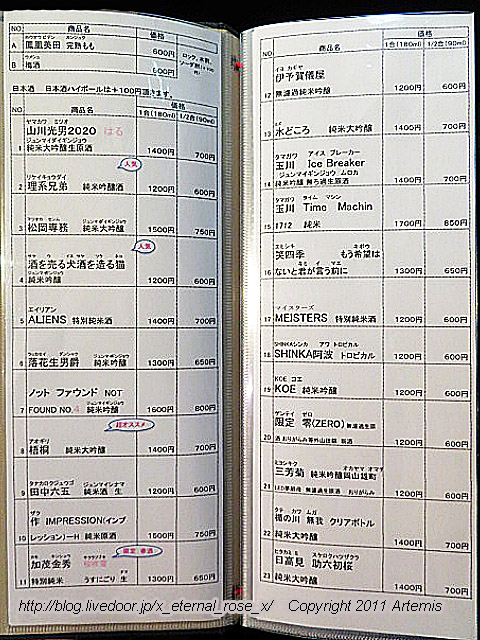 NO 商品名 価格
カンジュク
A 鳳凰美田 完熟もも 600円 ロック、水割、
ウメシュ
B 梅酒 600円
日本酒 日本酒ハイボールは+100円頂きます。
商品名 価格
NO 1合(180ml) 1/2合(90ml)
ヤマカワ ミツオ
山川光男2020 はる
ジュンマイダイギンジョウ
1 純米大吟醸生原酒 1400円 700円
人気
リケイキョウダイ
2 理系兄弟 純米吟醸酒 1200円 600円
マツオカ センム ジュンマイダイギンジョウ
3 松岡専務 純米大吟醸 1500円 750円
人気
酒を売る犬酒を造る猫
ジュンマイギンジョウ
4 純米吟醸 1200円 600円
エイリアン
5 ALIENS 特別純米酒 1400円 700円
ラッカセイ ダンシャク ジュンマイギンジョウ
6 落花生男爵 純米吟醸 1300円 650円
ノット ファウンド NOT
7 FOUND NO.4 純米吟醸 1600円 800円
超オススメ
アオギリ
8 梧桐 純米大吟醸 1400円 700円
タナカロクジュウゴ ジュンマイナマ
9 田中六五 純米酒 生 1200円 600円
ザク
作 IMPRESSION(インプ
10 レッション)ーH 純米原酒 1500円 750円
限定 春酒
加茂金秀 桜吹雪
11 特別純米 うすにごり 生 1300円 650円
NO 商品名 価格
1合(180ml) 1/2合(90ml)
イヨ カギヤ
伊予賀儀屋
12 無濾過純米吟醸 1200円 600円
13 水どころ 純米大吟醸 1400円 700円
タマガワ アイス ブレーカー
玉川 Ice Breaker
ジュンマイギンジョウ ムロカ
14 純米吟醸 無ろ過生原酒 1400円 700円
タマガワ タイム マシン
玉川 Time Machin
15 1712 純米 1700円 850円
エミシキ キボウ
笑四季 もう希望は
キミ イ マエ
16 ないと君が言う前に 1300円 650円
マイスターズ
17 MEISTERS 特別純米酒 1200円 600円
SHINKAシンカ アワ トロピカル
18 SHINKA阿波 トロピカル 1200円 600円
KOE コエ
19 KOE 純米吟醸 1200円 600円
ゲンテイ ゼロ
限定 零(ZERO)無濾過生原
20 酒 おりがらみ等外山田錦 新酒 1200円 600円
ミヨシキク オカヤマ オマチ
三芳菊 純米吟醸岡山雄町
21 無濾過生原酒 おりがらみ 1200円 600円
タテ カワ ムガ
楯の川 無我 クリアボトル
22 純米大吟醸 1400円 700円
ヒタカミ スケロクハツザクラ
日高見 助六初桜
23 純米吟醸 1400円 700円
http://blog.livedoor.jp/x_eternal_rose_x/ Copyright 2011 Artemis